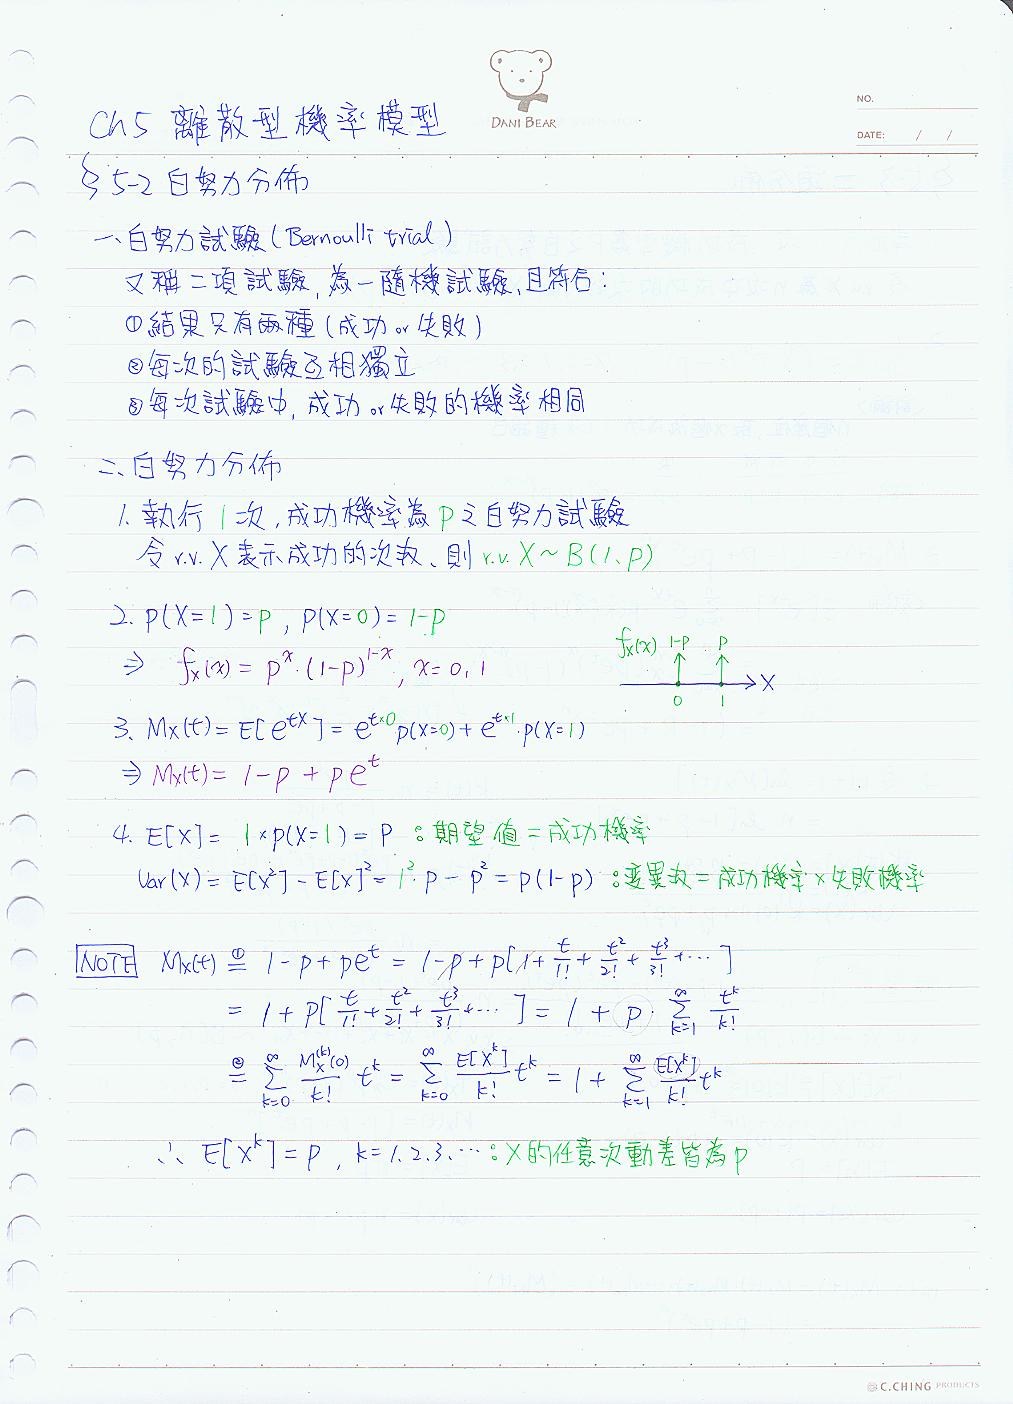 DANI BEAR
NO.
DATE: / /
Ch5 離散型機率模型
§5-2 白努力分佈
一、白努力試驗(Bernoulli trial)
又稱二項試驗,為一隨機試驗,且符合:
①結果只有兩種(成功or失敗)
②每次的試驗互相獨立
③每次試驗中,成功or失敗的機率相同
二、白努力分佈
1. 執行1次,成功機率為p之白努力試驗
令r.v. X表示成功的次數、則r.v. X~B(1、p)
2. p(X=1)=p, p(X=0)=1-p
⇒ fx(x)=p^x·(1-p)^(1-x), x=0,1
fx(x) 1-p p
0 1 X
3. Mx(t)=E[e^(tX)]=e^(t×0)p(X=0)+e^(t×1)·p(X=1)
⇒ Mx(t)=1-p+pe^t
4. E[X]=1×p(X=1)=P :期望值=成功機率
Var(X)=E[X²]-E[X]²=1²·p-p²=p(1-p) :變異數=成功機率×失敗機率
NOTE Mx(t) ①= 1-p+pe^t = 1-p+p[1+t/1!+t²/2!+t³/3!+…]
= 1+p[t/1!+t²/2!+t³/3!+…] = 1+p·∑_{k=1}^∞ t^k/k!
②= ∑_{k=0}^∞ Mx^(k)(0)/k! t^k = ∑_{k=0}^∞ E[X^k]/k! t^k = 1+∑_{k=1}^∞ E[X^k]/k! t^k
∴ E[X^k]=p, k=1.2.3.… :X的任意次動差皆為p
C.CHING PRODUCTS